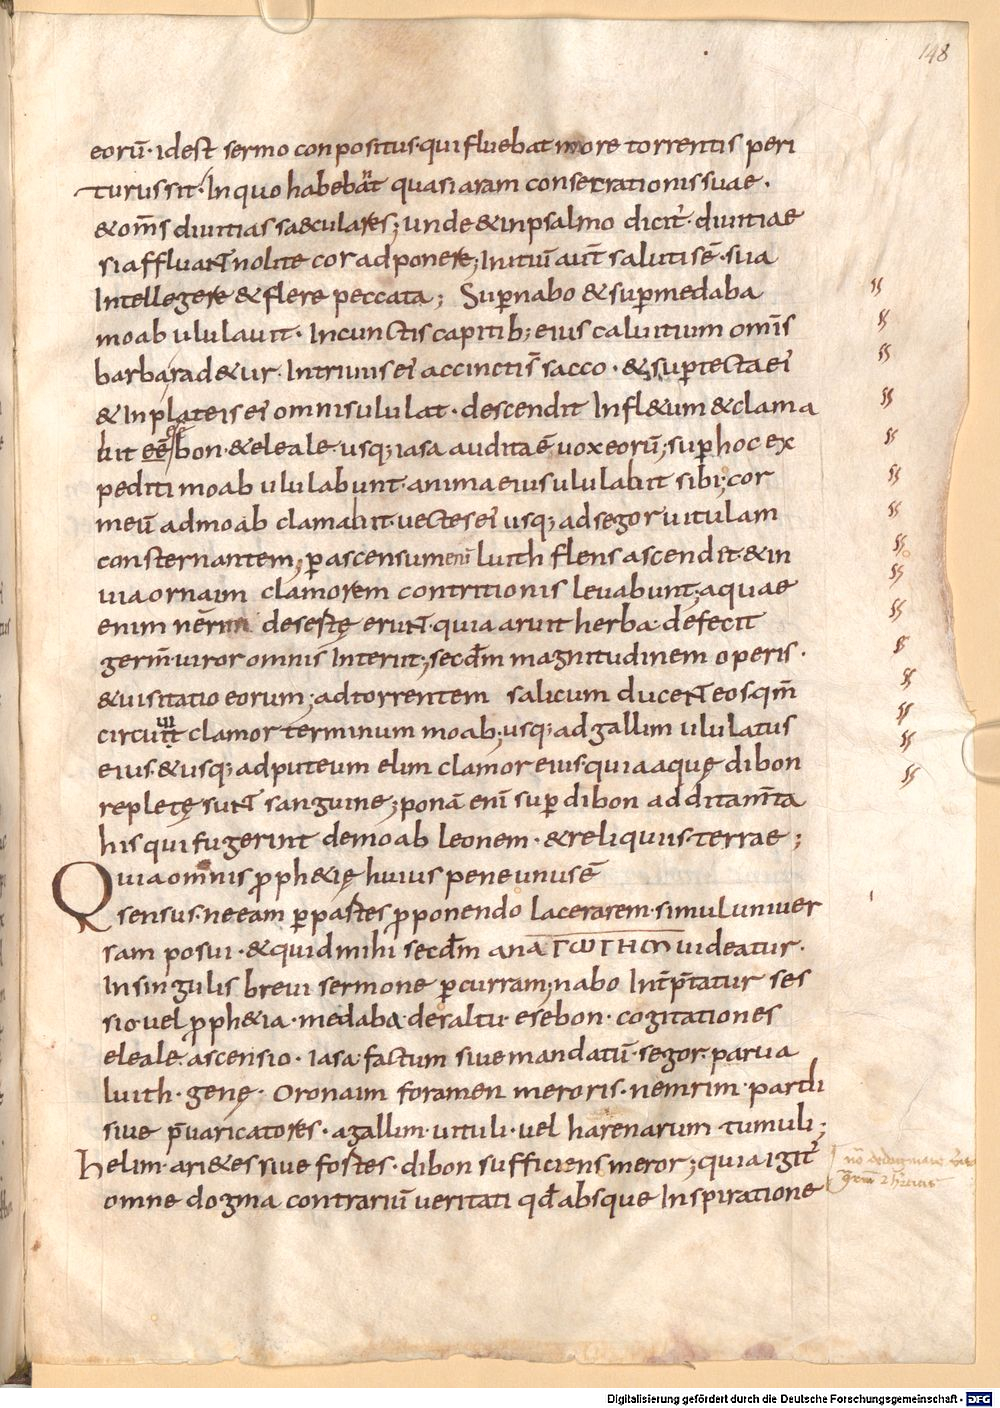 148
eorū· idest sermo conpositus· qui fluebat more torrentis peri
turus sit· In quo habebat quasi aram consecrationis suae·
&om̄s diuitias saeculares; unde & in psalmo dicit̄· diuitiae
si affluant nolite cor adponere; Initiū aut̄ salutis ē· sua
Intellegere & flere peccata; Sup nabo & sup medaba
moab ululauit· In cunctis capitib; eius caluitium om̄is
barba rad&ur· In triuiis ei accincti s̄ sacco· & sup tecta ei
& In plateis ei omnis ululat· descendit In fl&um & clama
bit esebon· & eleale· usq; iasa audita ē uox eorū; sup hoc ex
pediti moab ululabunt· anima eius ululabit sibi; cor
meū ad moab clamabit· uectes ei usq; ad segor uitulam
consternantem; p ascensum enī luith flens ascendit· & in
uia ornaim clamorem contritionis leuabunt; aquae
enim nemrim desertę erunt· quia aruit herba· defecit
germ̄· uiror omnis Interiit; secdm magnitudinem operis·
& uisitatio eorum; ad torrentem salicum ducent eos· qm̄
circuit clamor terminum moab; usq; ad gallim ululatus
eius· & usq; ad puteum elim clamor eius· quia aquę dibon
repletę sunt sanguine; ponā enī sup dibon additam̄ta
his qui fugerint de moab leonem· & reliquiis terrae;
Quia omnis pph&ię huius pene unus ē
sensus· ne eam p partes pponendo lacerarem· simul uniuer
sam posui· & quid mihi secdm ana ΓωΓΗΝ uideatur·
In singulis breui sermone pcurram; nabo Int̄p̄tatur ses
sio· uel pph&ia· medaba· de saltu· esebon· cogitationes
eleale· ascensio· iasa· factum siue mandatū· segor· parua
luith· genę· Oronaim foramen meroris· nemrim· pardi
siue p̄uaricatores· agallim· uituli· uel harenarum tumuli;
helim· ari&es siue fortes· dibon sufficiens meror; quia igit̄
omne dogma contrariū ueritati qd absque Inspiratione